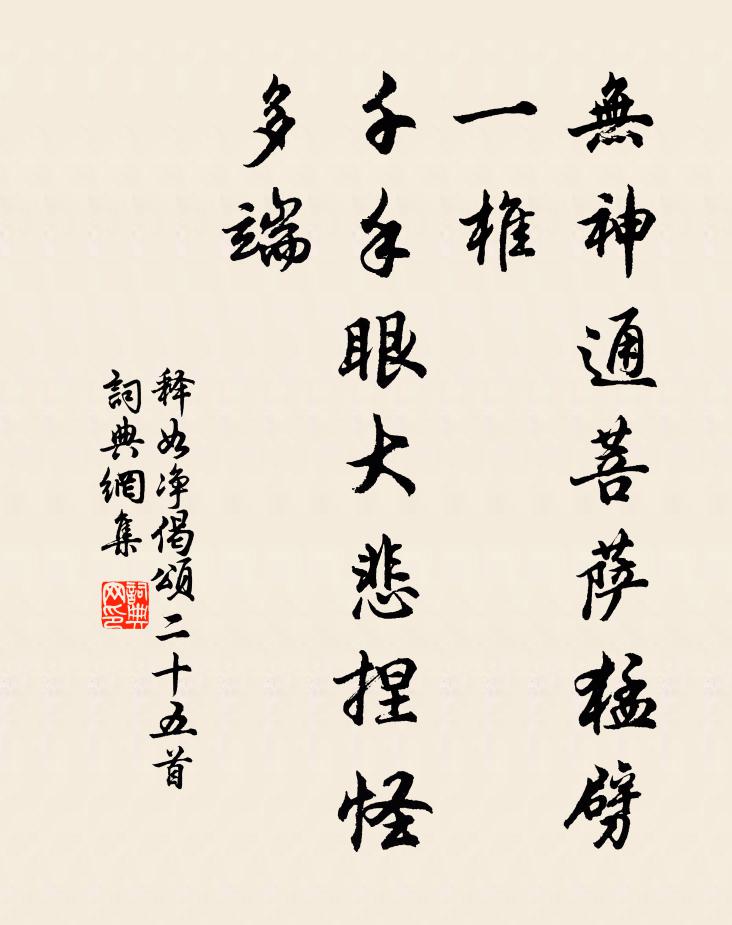 無神通菩萨猛劈
一椎
千手眼大悲捏怪
多端
释如净偈頌二十五首
詞典網集
詞典
网印